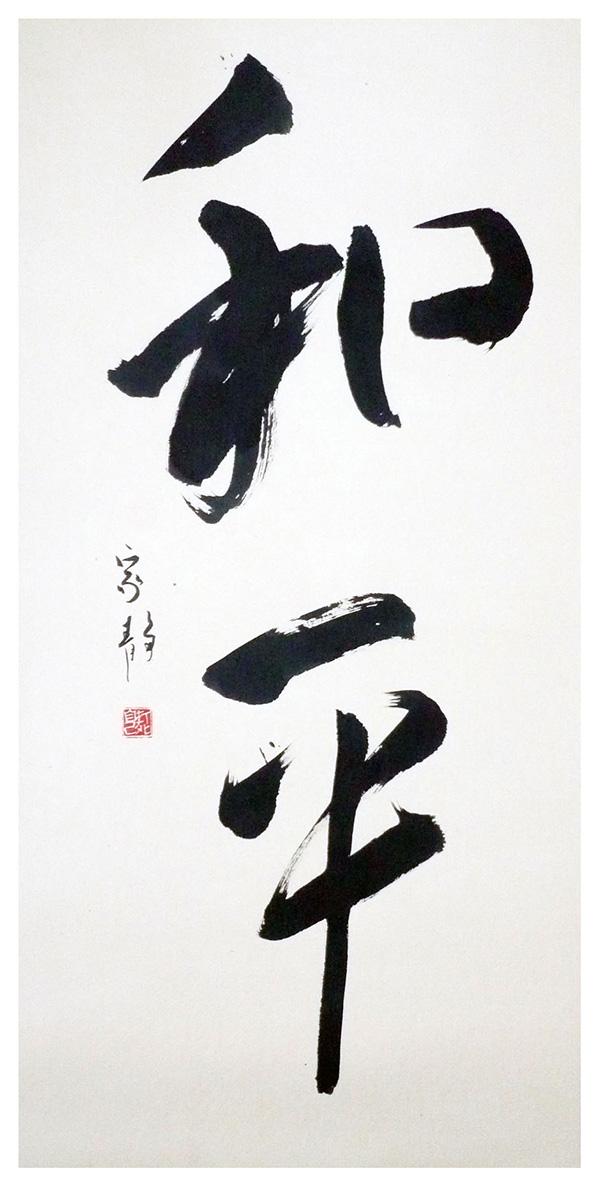 和平
家静